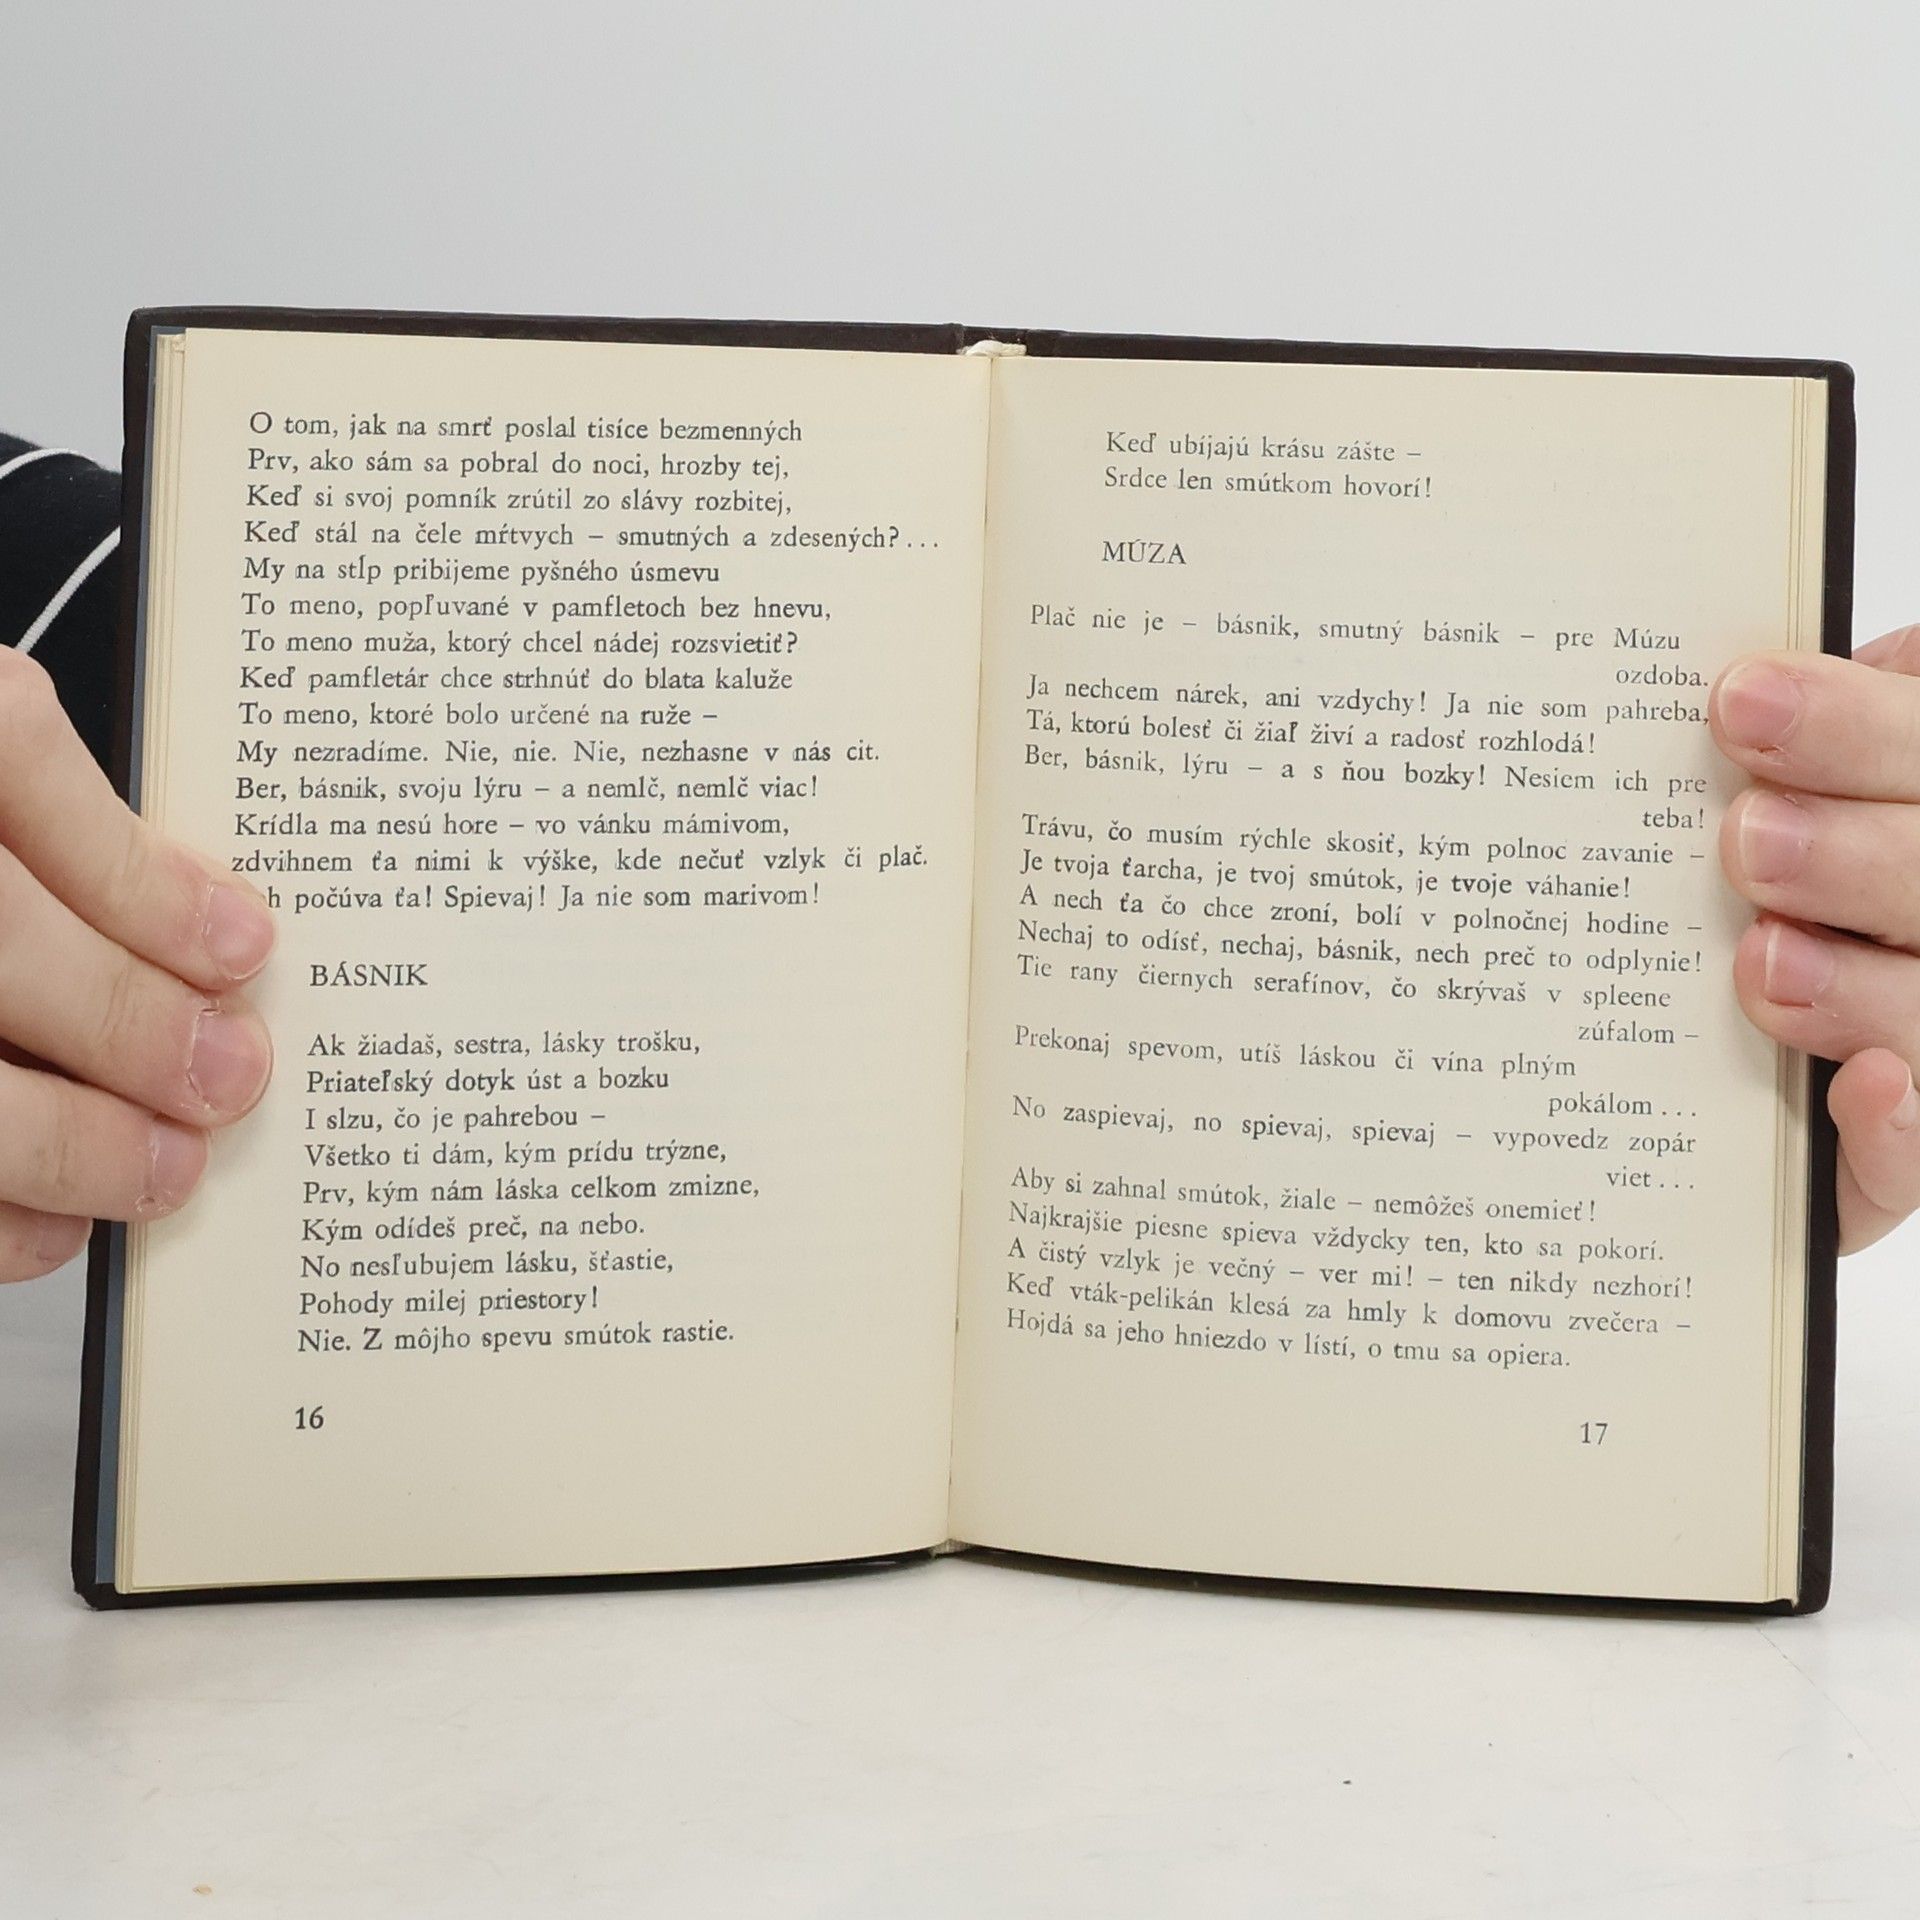 O tom, jak na smrť poslal tisíce bezmenných
Prv, ako sám sa pobral do noci, hrozby tej,
Keď si svoj pomník zrútil zo slávy rozbitej,
Keď stál na čele mŕtvych – smutných a zdesených?...
My na stĺp pribijeme pyšného úsmevu
To meno, popľuvané v pamfletoch bez hnevu,
To meno muža, ktorý chcel nádej rozsvietiť?
Keď pamfletár chce strhnúť do blata kaluže
To meno, ktoré bolo určené na ruže –
My nezradíme. Nie, nie. Nie, nezhasne v nás cit.
Ber, básnik, svoju lýru – a nemlč, nemlč viac!
Krídla ma nesú hore – vo vánku mámivom,
zdvihnem ťa nimi k výške, kde nečuť vzlyk či plač.
počúva ťa! Spievaj! Ja nie som marivom!
BÁSNIK
Ak žiadaš, sestra, lásky trošku,
Priateľský dotyk úst a bozku
I slzu, čo je pahrebou –
Všetko ti dám, kým prídu trýzne,
Prv, kým nám láska celkom zmizne,
Kým odídeš preč, na nebo.
No nesľubujem lásku, šťastie,
Pohody milej priestory!
Nie. Z môjho spevu smútok rastie.
16
Keď ubíjajú krásu zášte –
Srdce len smútkom hovorí!
MÚZA
Plač nie je – básnik, smutný básnik – pre Múzu
ozdoba.
Ja nechcem nárek, ani vzdychy! Ja nie som pahreba,
Tá, ktorú bolesť či žiaľ živí a radosť rozhlodá!
Ber, básnik, lýru – a s ňou bozky! Nesiem ich pre
teba!
Trávu, čo musím rýchle skosiť, kým polnoc zavanie –
Je tvoja ťarcha, je tvoj smútok, je tvoje váhanie!
A nech ťa čo chce zroní, bolí v polnočnej hodine –
Nechaj to odísť, nechaj, básnik, nech preč to odplynie!
Tie rany čiernych serafínov, čo skrývaš v spleene
zúfalom –
Prekonaj spevom, utíš láskou či vína plným
pokálom...
No zaspievaj, no spievaj, spievaj – vypovedz zopár
viet...
Aby si zahnal smútok, žiale – nemôžeš onemieť!
Najkrajšie piesne spieva vždycky ten, kto sa pokorí.
A čistý vzlyk je večný – ver mi! – ten nikdy nezhorí!
Keď vták-pelikán klesá za hmly k domovu zvečera –
Hojdá sa jeho hniezdo v lístí, o tmu sa opiera.
17